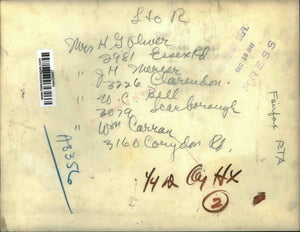 L to R
Mrs H G Oliver
2981 Essex Rd
" J H Mercer
3226 Clarendon.
" W C Bell
3079 Scarborough
" Wm Curran
3160 Corydon Rd.
PRESS
Fairfax
PTA
H8356
2